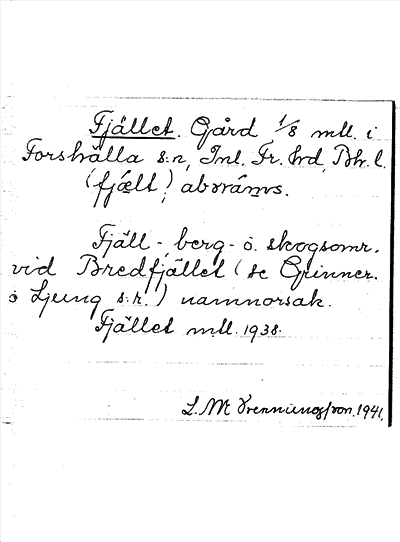 Fjället. Gård 1/8 mtl. i
Forshälla s:n, Inl. Fr. hd, Bh. l.
(fjælt),
Fjäll-, berg- o. skogsomr.
vid Bredfjället (se Grinner.
o Ljung s:r.) namnorsak.
Fjället mtl. 1938.
L. M 1941.